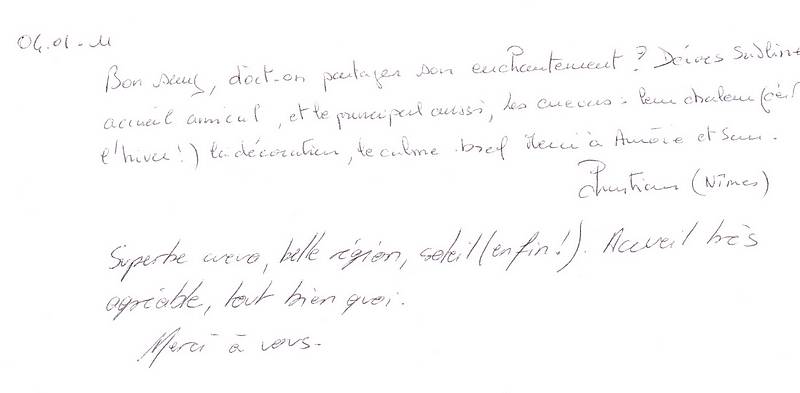 04.01-11
Bon sang, doit-on partager son enchantement? Décors Sublime
accueil amical, et le principal aussi, les cuevas: leur chaleur (c'est
l'hiver!) la décoration, le calme bref Merci à Aurore et
Christiane (Nîmes)
Superbe cueva, belle région, soleil (enfin!). Accueil très
agréable, tout bien quoi.
Merci à vous.